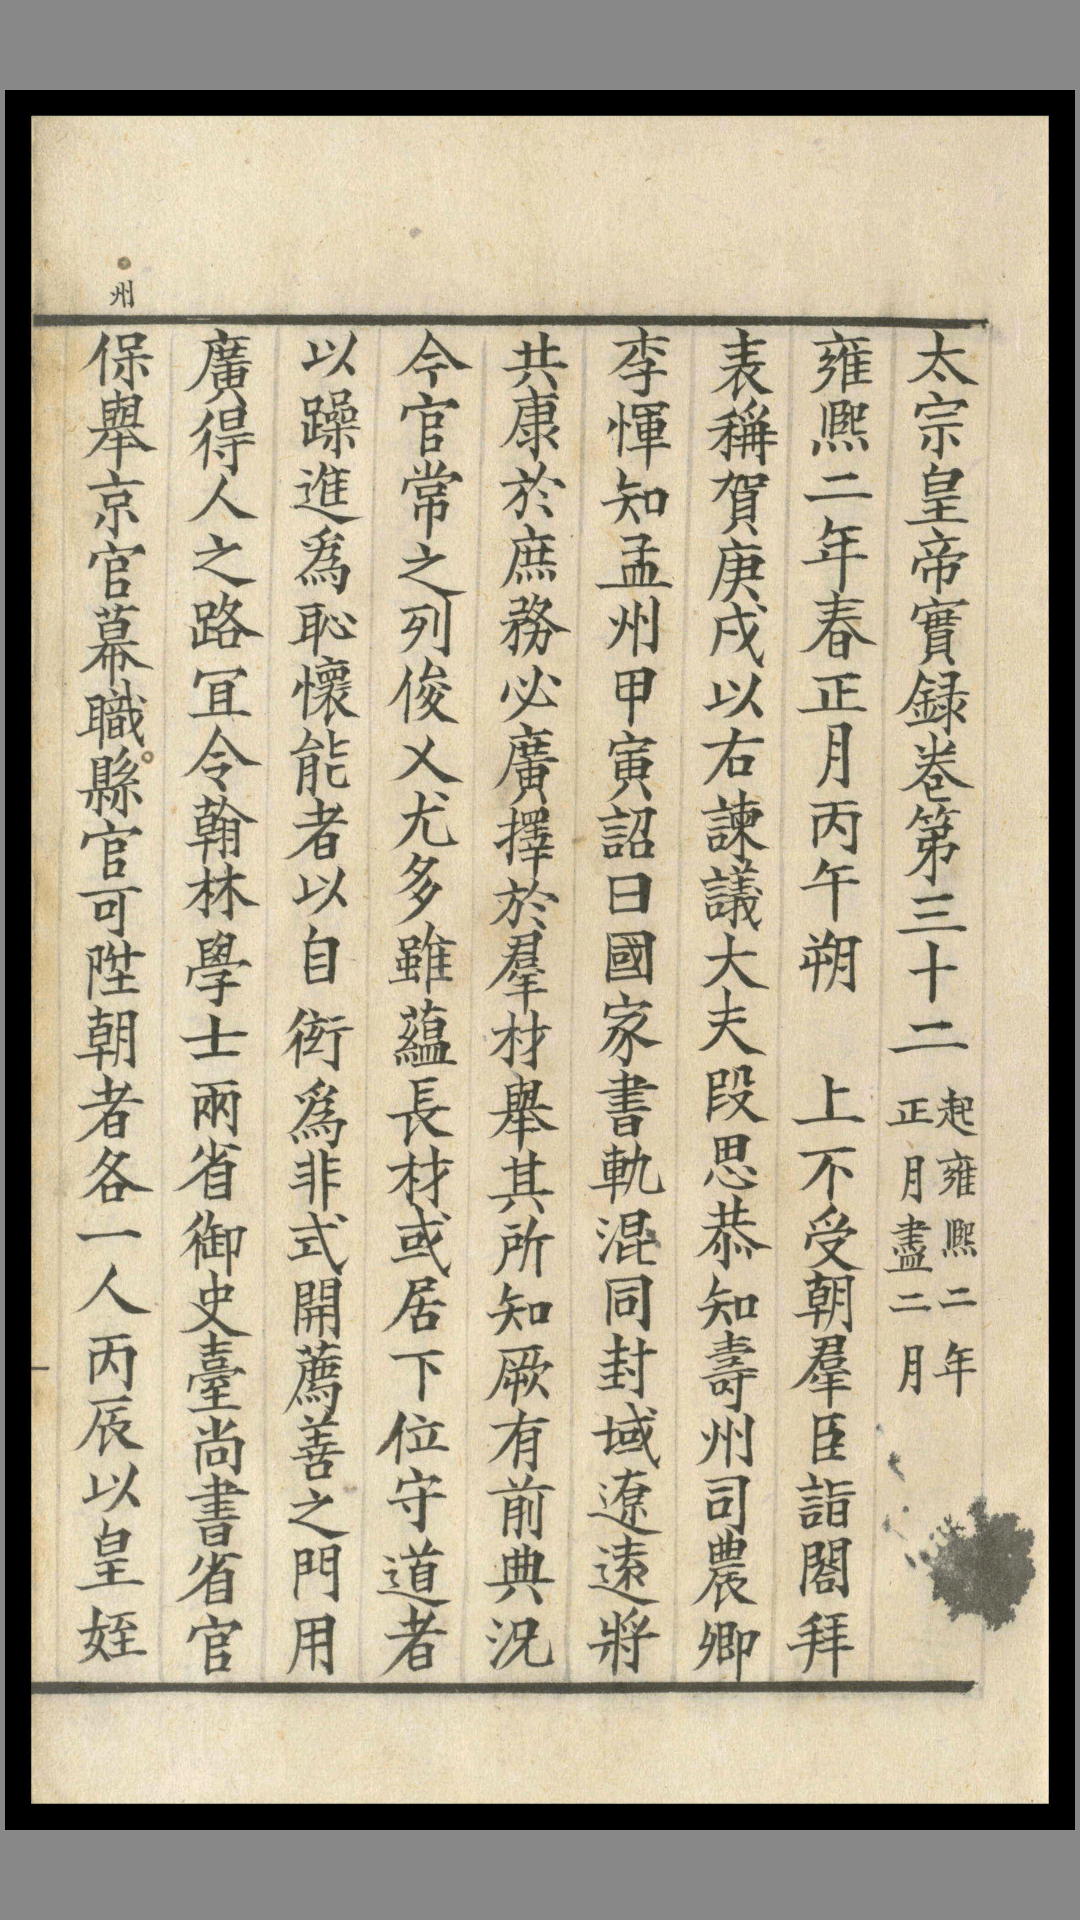 太宗皇帝實録巻第三十二 起雍熙二年正月盡二月
雍熙二年春正月丙午朔 上不受朝羣臣詣閤拜
表稱賀庚戌以右諫議大夫段思恭知壽州司農卿
李惲知孟州甲寅詔曰國家書軌混同封域遼遠將
共康於庶務必廣擇於羣材舉其所知厥有前典況
今官常之列俊乂尤多雖藴長材或居下位守道者
以躁進爲恥懷能者以自衒爲非式開薦善之門用
廣得人之路冝令翰林學士兩省御史臺尚書省官
保舉京官幕職縣官可陞朝者各一人丙辰以皇姪
州